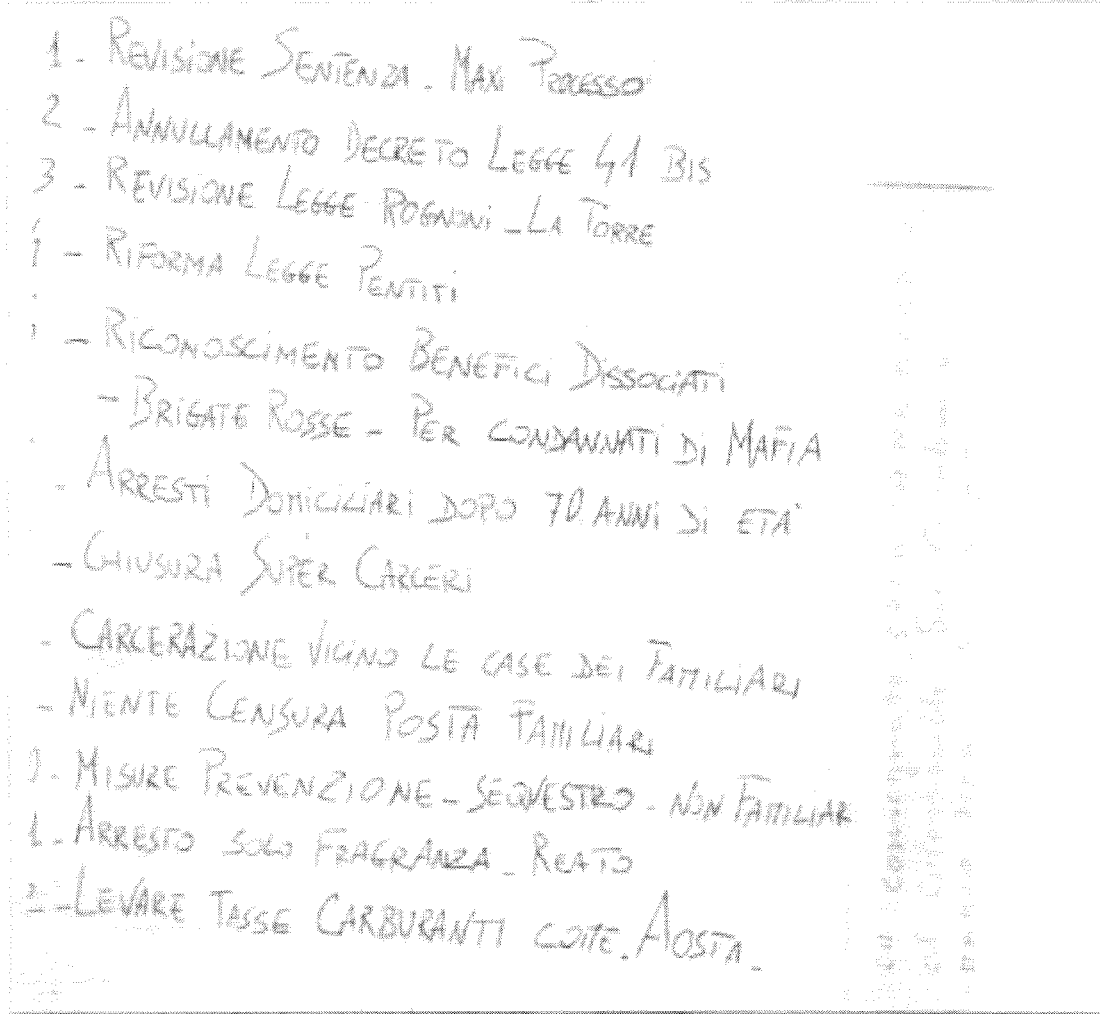 1 - REVISIONE SENTENZA - MAXI PROCESSO
2 - ANNULLAMENTO DECRETO LEGGE 41 BIS
3 - REVISIONE LEGGE ROGNONI - LA TORRE
- RIFORMA LEGGE PENTITI
- RICONOSCIMENTO BENEFICI DISSOCIATI
- BRIGATE ROSSE - PER CONDANNATI DI MAFIA
- ARRESTI DOMICILIARI DOPO 70 ANNI DI ETA'
- CHIUSURA SUPER CARCERI
- CARCERAZIONE VICINO LE CASE DEI FAMILIARI
- NIENTE CENSURA POSTA FAMILIARI
- MISURE PREVENZIONE - SEQUESTRO - NON FAMILIAR
1 - ARRESTO SOLO FRAGRANZA - REATO
2 - LEVARE TASSE CARBURANTI COME - AOSTA -